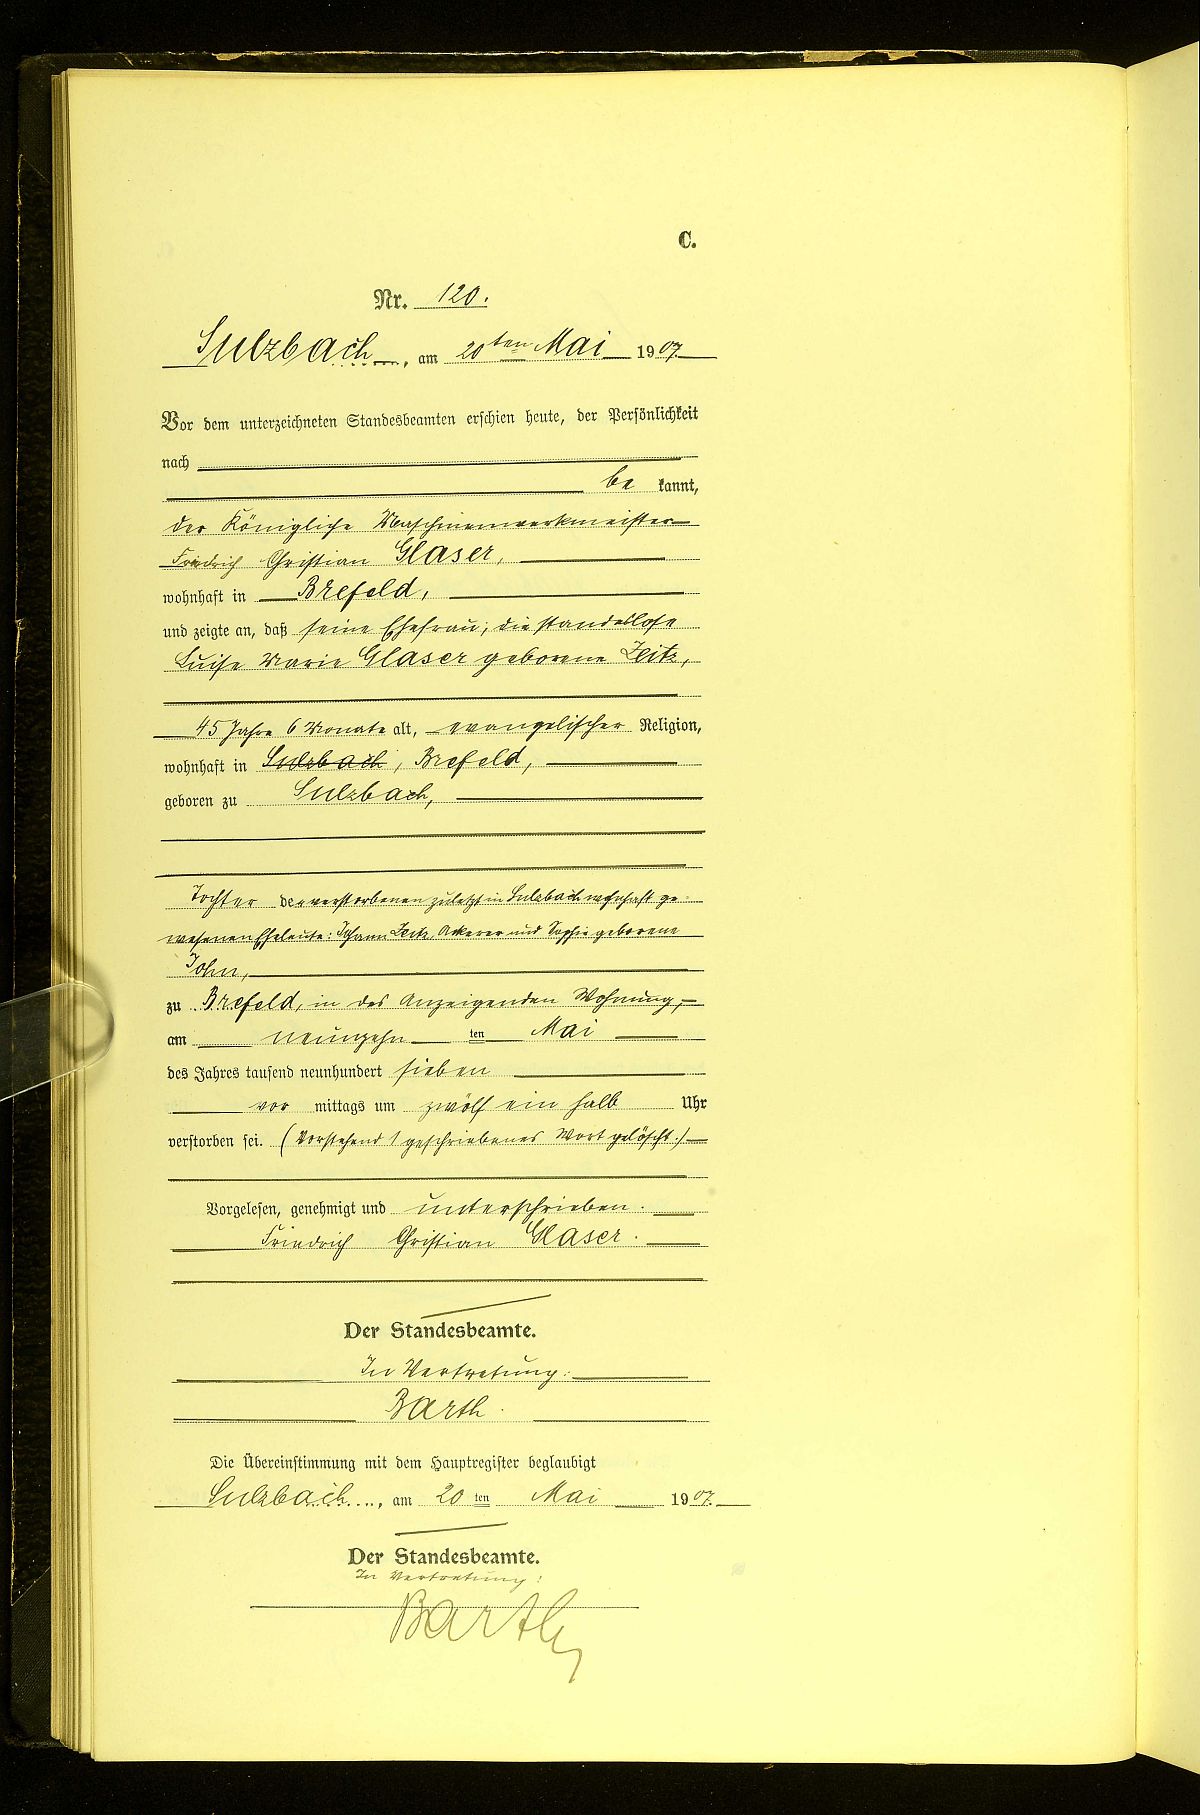 C.
Nr. 120.
Sulzbach, am 20ten Mai 1907
Vor dem unterzeichneten Standesbeamten erschien heute, der Persönlichkeit
nach
be kannt,
der Königliche Maschinenwerkmeister
Friedrich Christian Glaser,
wohnhaft in Brefeld,
und zeigte an, daß seine Ehefrau, die standeslose
Luise Marie Glaser geborene Zeitz,
45 Jahre 6 Monate alt, evangelischer Religion,
wohnhaft in Sulzbach, Brefeld,
geboren zu Sulzbach,
Tochter der verstorbenen zuletzt in Sulzbach wohnhaft ge-
wesenen Eheleute: Johann Zeitz, Ackerer und Sophie geborene
John,
zu Brefeld, in des Anzeigenden Wohnung,
am neunzehn ten Mai
des Jahres tausend neunhundert sieben
vor mittags um zwölf ein halb Uhr
verstorben sei. (Vorstehend 1 geschriebenes Wort gelöscht.)
Vorgelesen, genehmigt und unterschrieben.
Friedrich Christian Glaser.
Der Standesbeamte.
In Vertretung:
Barth.
Die Übereinstimmung mit dem Hauptregister beglaubigt
Sulzbach, am 20 ten Mai 1907.
Der Standesbeamte.
In Vertretung:
Barth